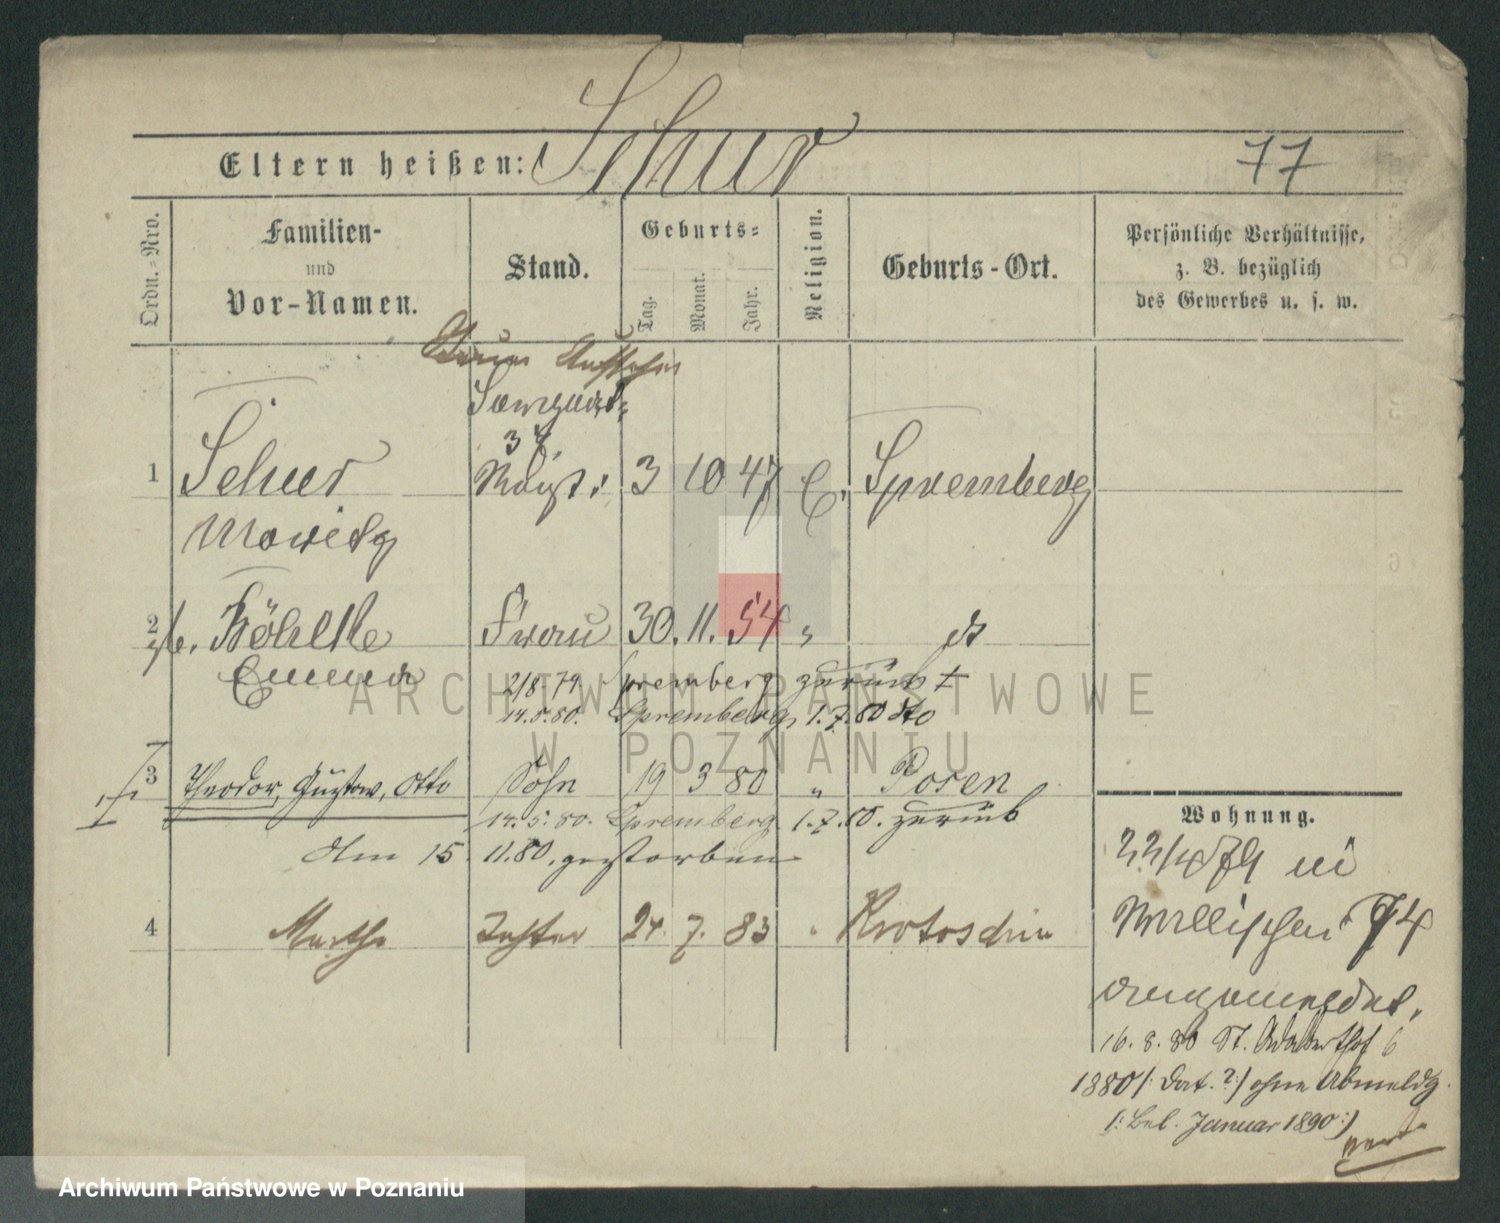 Eltern heißen: Schur 77
Ordn.-Nro.
Familien-
und
Vor-Namen.
Stand.
Geburts-
Tag.
Monat.
Jahr.
Religion.
Geburts-Ort.
Persönliche Verhältnisse,
z. B. bezüglich
des Gewerbes u. s. w.
Aufseher
34
1 Schur 3 10 47 E. Spremberg
Moritz
2 Böhlke Frau 30. 11. 54 " do
Emma 2/8 79 Spremberg zurück
14.5.80. Spremberg, 1.7.80 dto
3 Theodor, Gustav, Otto Sohn 19 3 80 " Posen
14.5.80. Spremberg 1.7.80. zurück
Am 15 11.80. gestorben
4 Martha Tochter 24. 7. 83 " Krotoschin
Wohnung.
22/4 79 in
Wallischei 74
angemeldet.
16. 8. 80 St. Adalberthof 6
1880 /: Dat. ? :/ ohne Abmeldg.
/: Bel. Januar 1890 :/
ARCHIWUM PAŃSTWOWE
W POZNANIU
Archiwum Państwowe w Poznaniu